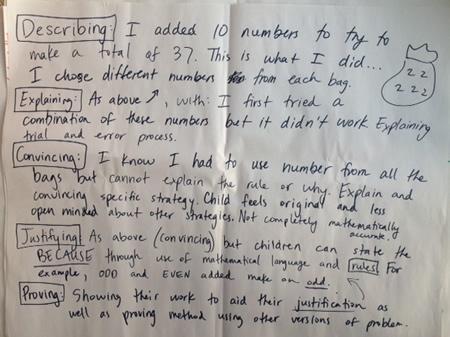 Describing: I added 10 numbers to try to
make a total of 37. This is what I did...
I chose different numbers from each bag.
2 2
2 2 2
Explaining: As above ↗, with: I first tried a
combination of these numbers but it didn't work Explaining
trial and error process.
Convincing: I know I had to use number from all the
bags but cannot explain the rule or why. Explain and
convincing specific strategy. Child feels original and less
open minded about other strategies. Not completely mathematically
accurate.
Justifying: As above (convincing) but children can state the
BECAUSE through use of mathematical language and rules. For
example, ODD and EVEN added make an odd.
Proving: Showing their work to aid their justification as
well as proving method using other versions of problem.